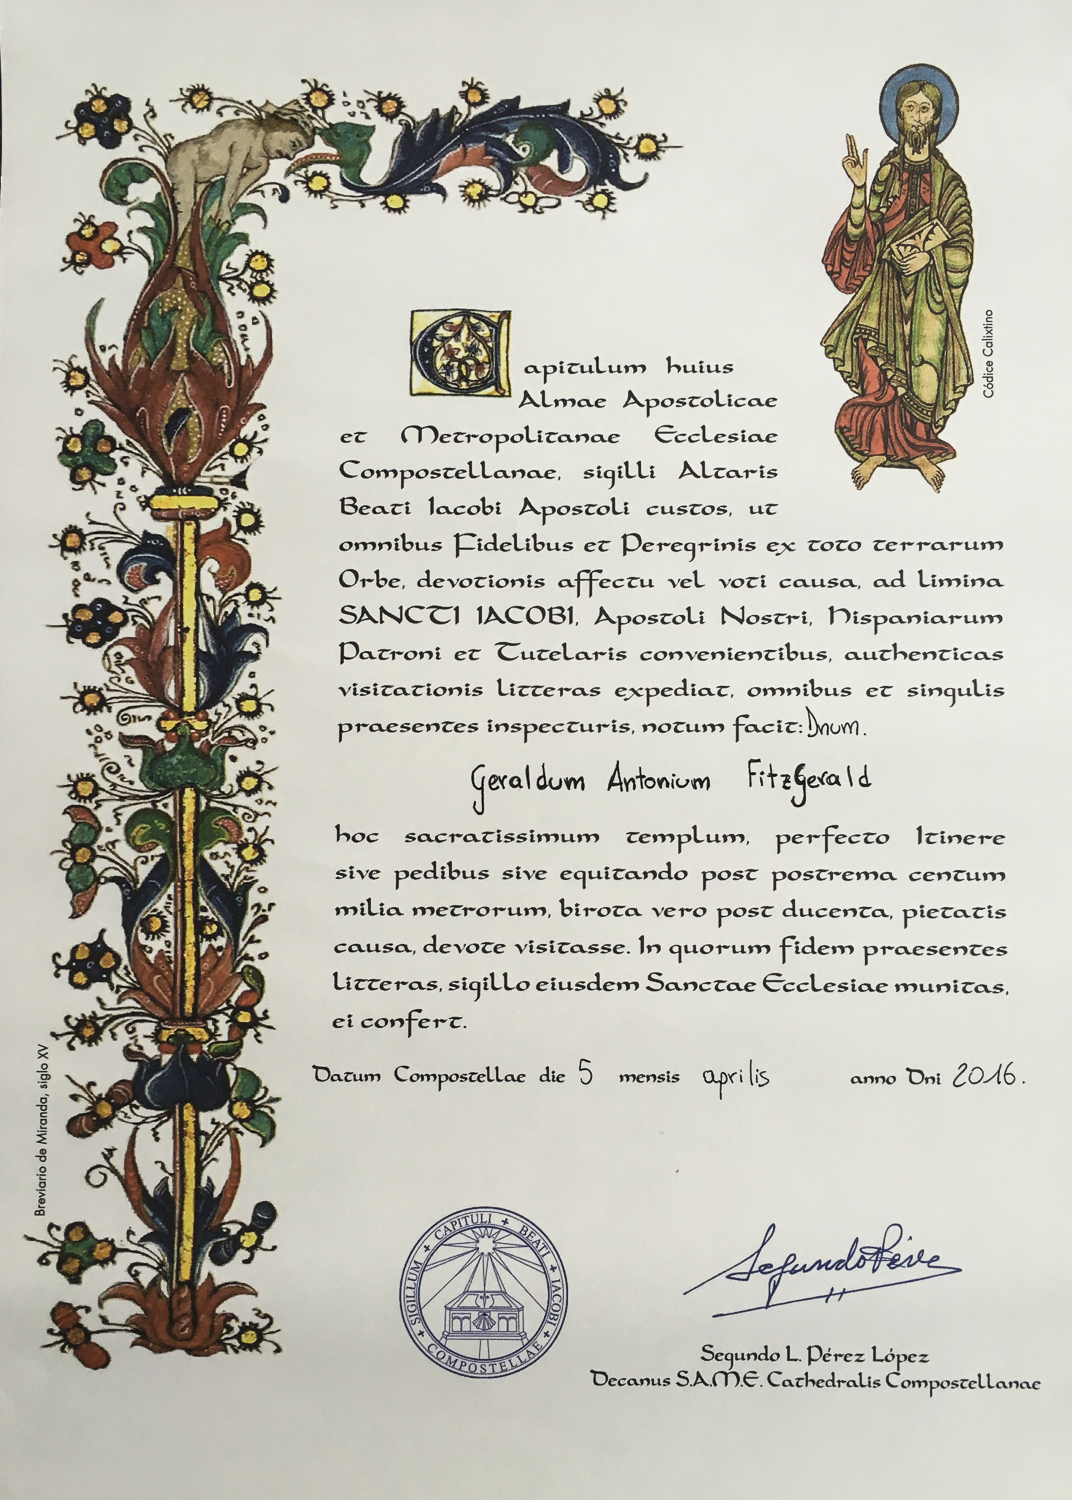 Códice Calixtino
Capitulum huius
Almae Apostolicae
et Metropolitanae Ecclesiae
Compostellanae, sigilli Altaris
Beati Iacobi Apostoli custos, ut
omnibus Fidelibus et Peregrinis ex toto terrarum
Orbe, devotionis affectu vel voti causa, ad limina
SANCTI IACOBI, Apostoli Nostri, Hispaniarum
Patroni et Tutelaris convenientibus, authenticas
visitationis litteras expediat, omnibus et singulis
praesentes inspecturis, notum facit: Dnum.
Geraldum Antonium FitzGerald
hoc sacratissimum templum, perfecto Itinere
sive pedibus sive equitando post postrema centum
milia metrorum, birota vero post ducenta, pietatis
causa, devote visitasse. In quorum fidem praesentes
litteras, sigillo eiusdem Sanctae Ecclesiae munitas,
ei confert.
Datum Compostellae die 5 mensis aprilis anno Dni 2016.
Breviario de Miranda, siglo XV
SIGILLUM + CAPITULI + BEATI + IACOBI + COMPOSTELLAE +
Segundo Pérez
Segundo L. Pérez López
Decanus S.A.M.E. Cathedralis Compostellanae